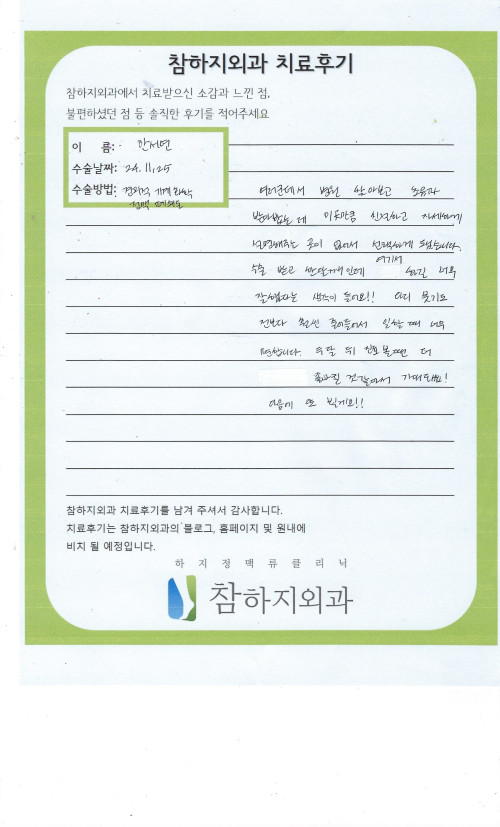 참하지외과 치료후기
참하지외과에서 치료받으신 소감과 느낀 점,
불편하셨던 점 등 솔직한 후기를 적어주세요
이 름: 안서연
수술날짜: 24. 11. 25
수술방법: 경화
여러군데서 병원 알아보고 초음파
받아봤는데 이곳만큼 친절하고 자세하게
설명해주는 곳이 없어서 선택하게 됐습니다.
수술 받고 한달째인데 여기서 하길 너무
잘했다는 생각이 들어요!! 다리 붓기도
전보다 훨씬 줄어들어서 일할 때 너무
편합니다. 한달 뒤 진료 볼때면 더
좋아질 것 같아서 기대돼요!
다음에 또 뵐게요!!
참하지외과 치료후기를 남겨 주셔서 감사합니다.
치료후기는 참하지외과의 블로그, 홈페이지 및 원내에
비치 될 예정입니다.
하지정맥류클리닉
참하지외과